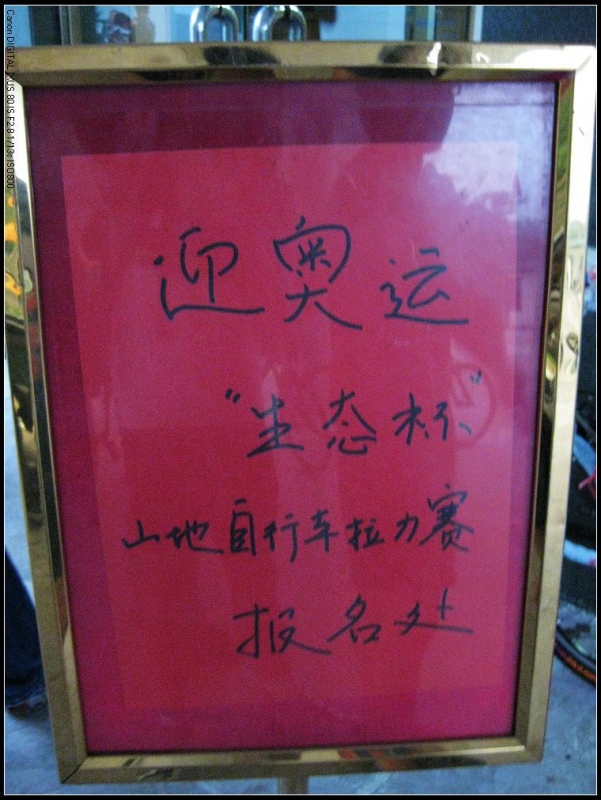 迎奥运
"生态杯"
山地自行车拉力赛
报名处
Canon DIGITAL IXUS 80 IS F2.8 1/13s ISO800